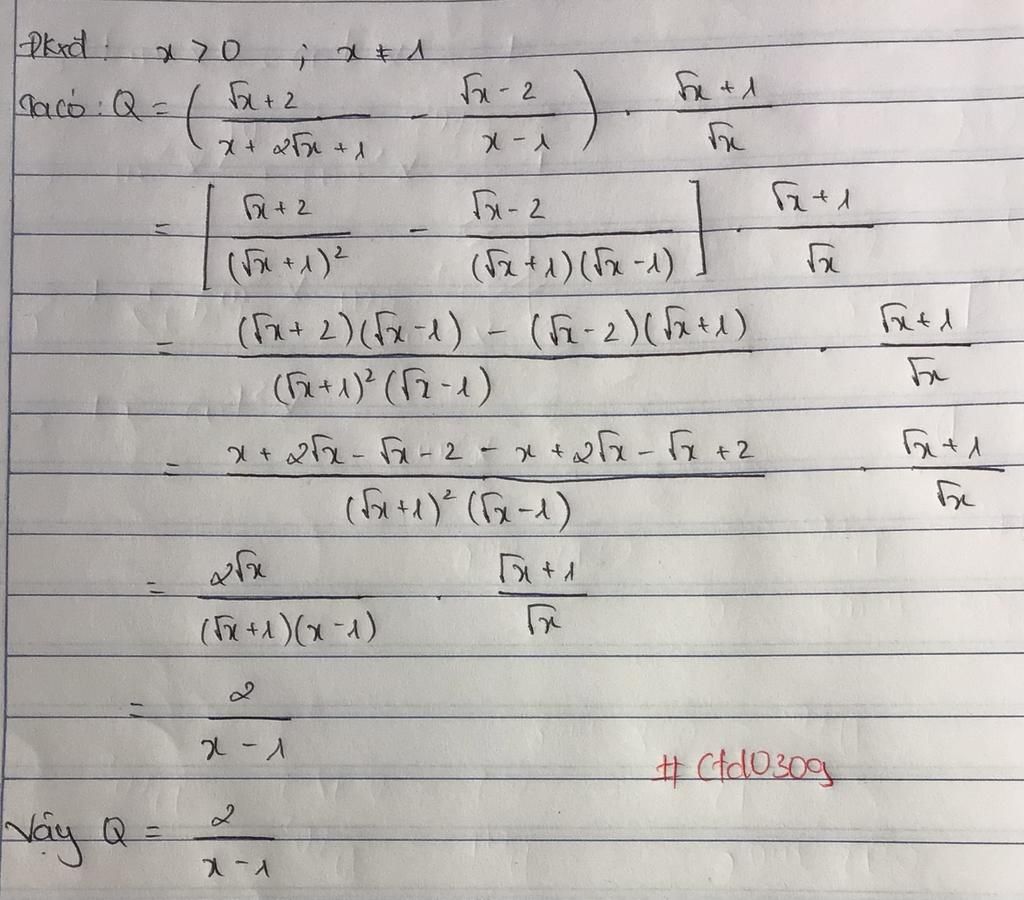 Đkxđ: x > 0 ; x ≠ 1
Ta có: Q = ( (√x + 2)/(x + 2√x + 1) - (√x - 2)/(x - 1) ) . (√x + 1)/√x
= [ (√x + 2)/(√x + 1)² - (√x - 2)/((√x + 1)(√x - 1)) ] . (√x + 1)/√x
= ((√x + 2)(√x - 1) - (√x - 2)(√x + 1))/((√x + 1)² (√x - 1)) . (√x + 1)/√x
= (x + 2√x - √x - 2 - x + 2√x - √x + 2)/((√x + 1)² (√x - 1)) . (√x + 1)/√x
= 2√x/((√x + 1)(x - 1)) . (√x + 1)/√x
= 2/(x - 1)
# Ctd0309
Vậy Q = 2/(x - 1)